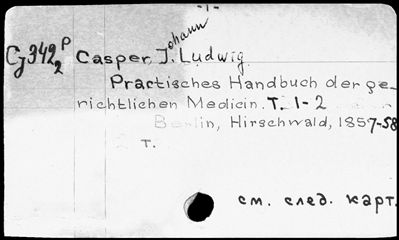 -1-
Cj 342/2 P Casper, Johann Ludwig.
Practisches Handbuch der ge-
richtlichen Medicin. T. 1-2
Berlin, Hirschwald, 1857-58
T.
см. след. карт.